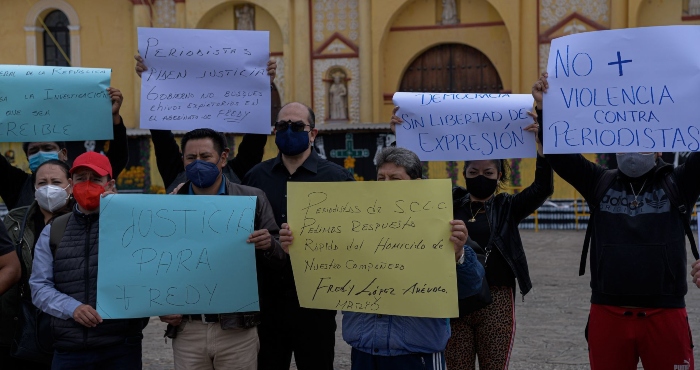 DE LA REPUBLICA
LA INVESTIGACIÓN
QUE SEA
CREIBLE
PERIODISTAS
PIDEN JUSTICIA
GOBIERNO NO BUSQUES
CHIVOS EXPIATORIOS EN EL
ASESINATO DE FREDY
DEMOCRACIA
SIN LIBERTAD DE
EXPRESIÓN
NO +
VIOLENCIA
CONTRA
PERIODISTAS
JUSTICIA
PARA
FREDY
PERIODISTAS DE S.C.L.C
PEDIMOS RESPUESTA
RÁPIDA DEL HOMICIDIO DE
NUESTRO COMPAÑERO
FREDY LÓPEZ ARÉVALO
adidas